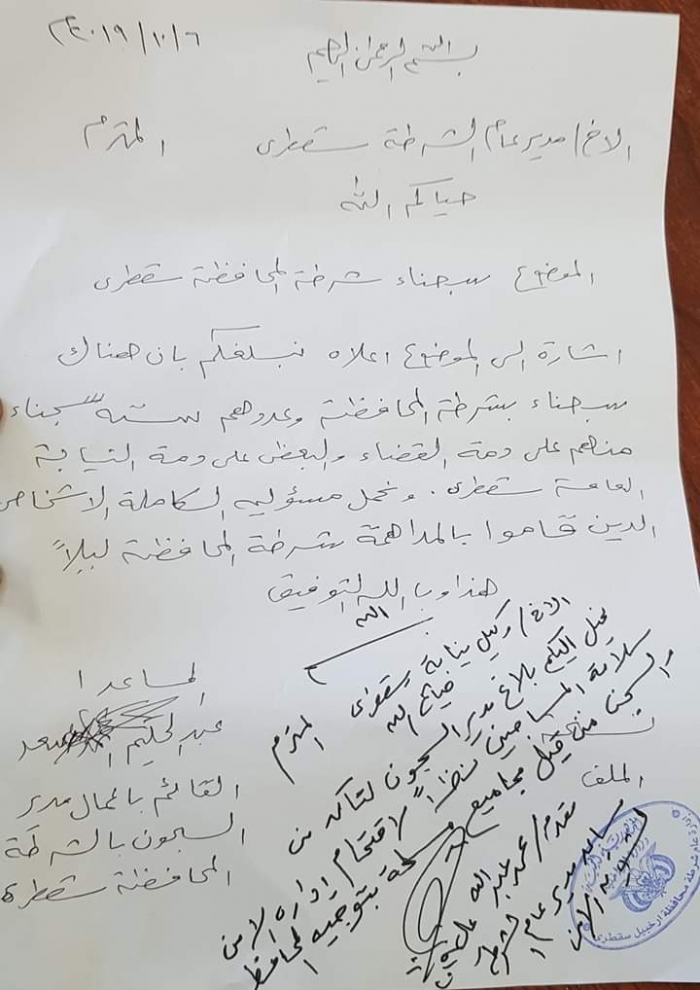 ٢٠١٩/١٠/٦
بسم الله الرحمن الرحيم
الاخ/ مدير عام الشرطة سقطرى المحترم
حياكم الله
الموضوع سجناء شرطة المحافظة سقطرى
اشارة الى الموضوع اعلاه نبلغكم بان هناك
سجناء بشرطة المحافظة وعددهم ستة سجناء
منهم على دمة القضاء والبعض على دمة النيابة
العامة سقطرى. ونحمل مسؤليه الكاملة الاشخاص
الدين قاموا بالمداهمة شرطة المحافظة ليلاً
هذا وبا الله التوفيق
الله
المساعد ا
عبدالحكيم
القائم باعمال مدير
السجون بالشرطة
المحافظة سقطرة
الاخ/ وكيل نيابة سقطرى المحترم
حياكم الله
نحيل اليكم بلاغ مدير السجون لتاكد من
سلامة المساجين نظراً لاقتحام إدارة الامن
والسجن من قبل مجاميع مسلحة بتوجيه المحافظ
الملف
مقدم/
مساعد مدير عام الشرطة